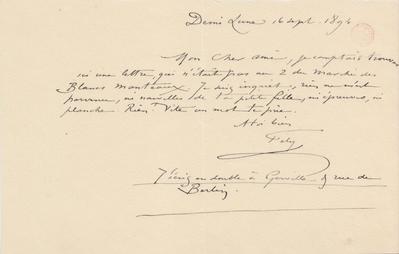 Demi Lune 16 sept. 1894
Mon cher ami, je comptais trouver
ici une lettre, qui n'était pas au 2 du Marché des
Blancs Manteaux. Je suis inquiet, rien ne m'est
parvenu, ni nouvelles de ta petite fille, ni épreuves, ni
planche. Rien. Vite un mot te prie.
à toi bien
Fély
J'écris en double à 5 rue de
Berlin